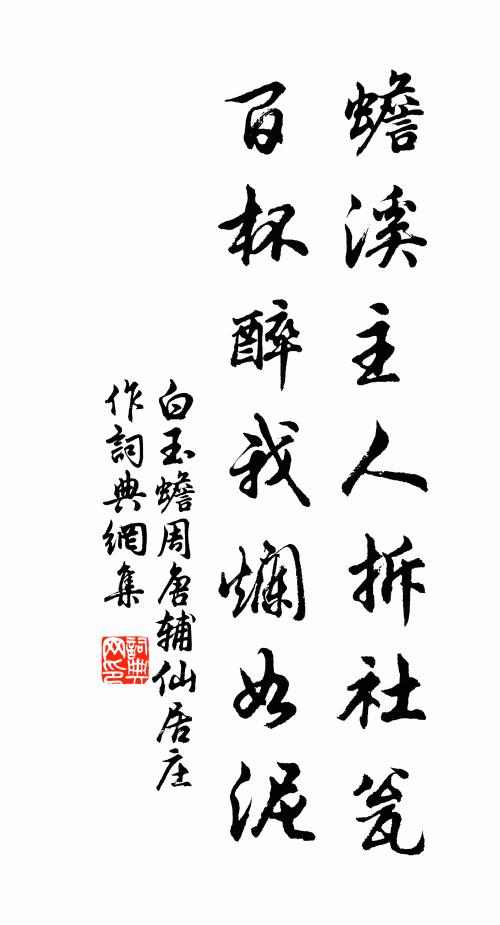 蟾溪主人拆社瓮
百杯醉我爛如泥
白玉蟾周唐輔仙居庄
作詞典網集
詞典網印